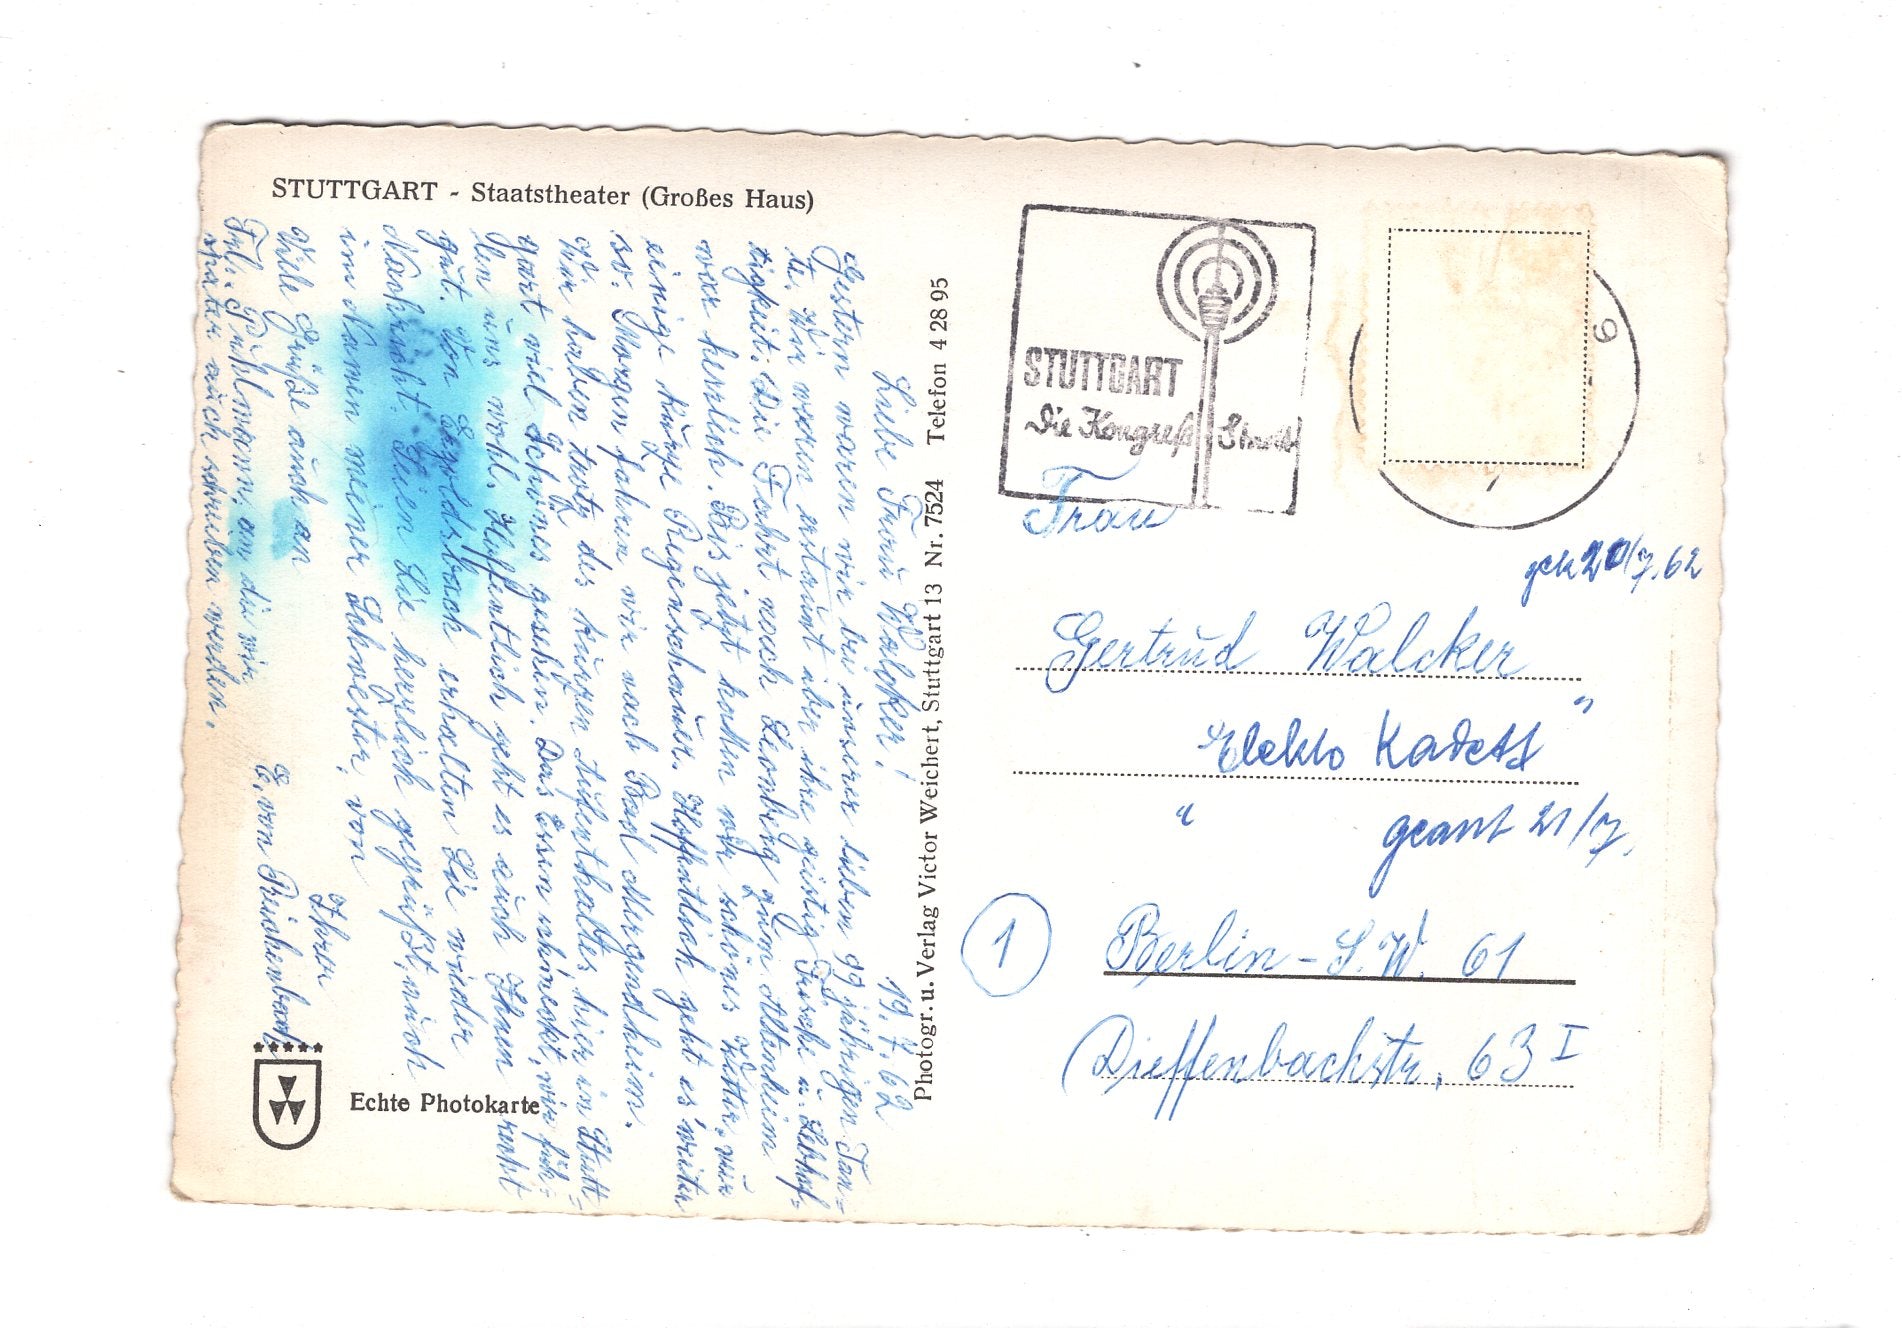 STUTTGART - Staatstheater (Großes Haus)
19.7.62
Liebe Frau Walcker!
Gestern waren wir bei unserer lieben 99 jährigen Tan-
te. Wir waren erstaunt über ihre geistig Frische u. Lebhaf-
tigkeit. Die Fahrt nach Leonberg zum Altenheim
war herrlich. Bis jetzt hatten wir schönes Wetter, nur
einige kurze Regenschauer. Hoffentlich geht es weiter
so. Morgen fahren wir nach Bad Mergentheim.
Wir haben trotz des kurzen Aufenthaltes hier in Stutt-
gart viel Schönes gesehen. Das Essen schmeckt, wir füh-
len uns wohl. Hoffentlich geht es auch Ihnen recht
gut. Von erhalten Sie wieder
Nachricht. Seien Sie herzlich gegrüßt, auch
im Namen meiner Schwester, von
Ihrer
E. von Reichenbach
Viele Grüße auch an
Frl. Pühlmann, an die wir
später auch schreiben werden.
Echte Photokarte
Photogr. u. Verlag Victor Weichert, Stuttgart 13 Nr. 7524 Telefon 4 28 95
STUTTGART
Die Kongreß Stadt
9
Frau
20/7.62
Gertrud Walcker
"Elekto Kadett"
geant 21/7.
1
Berlin - S.W. 61
Dieffenbachstr. 63 I